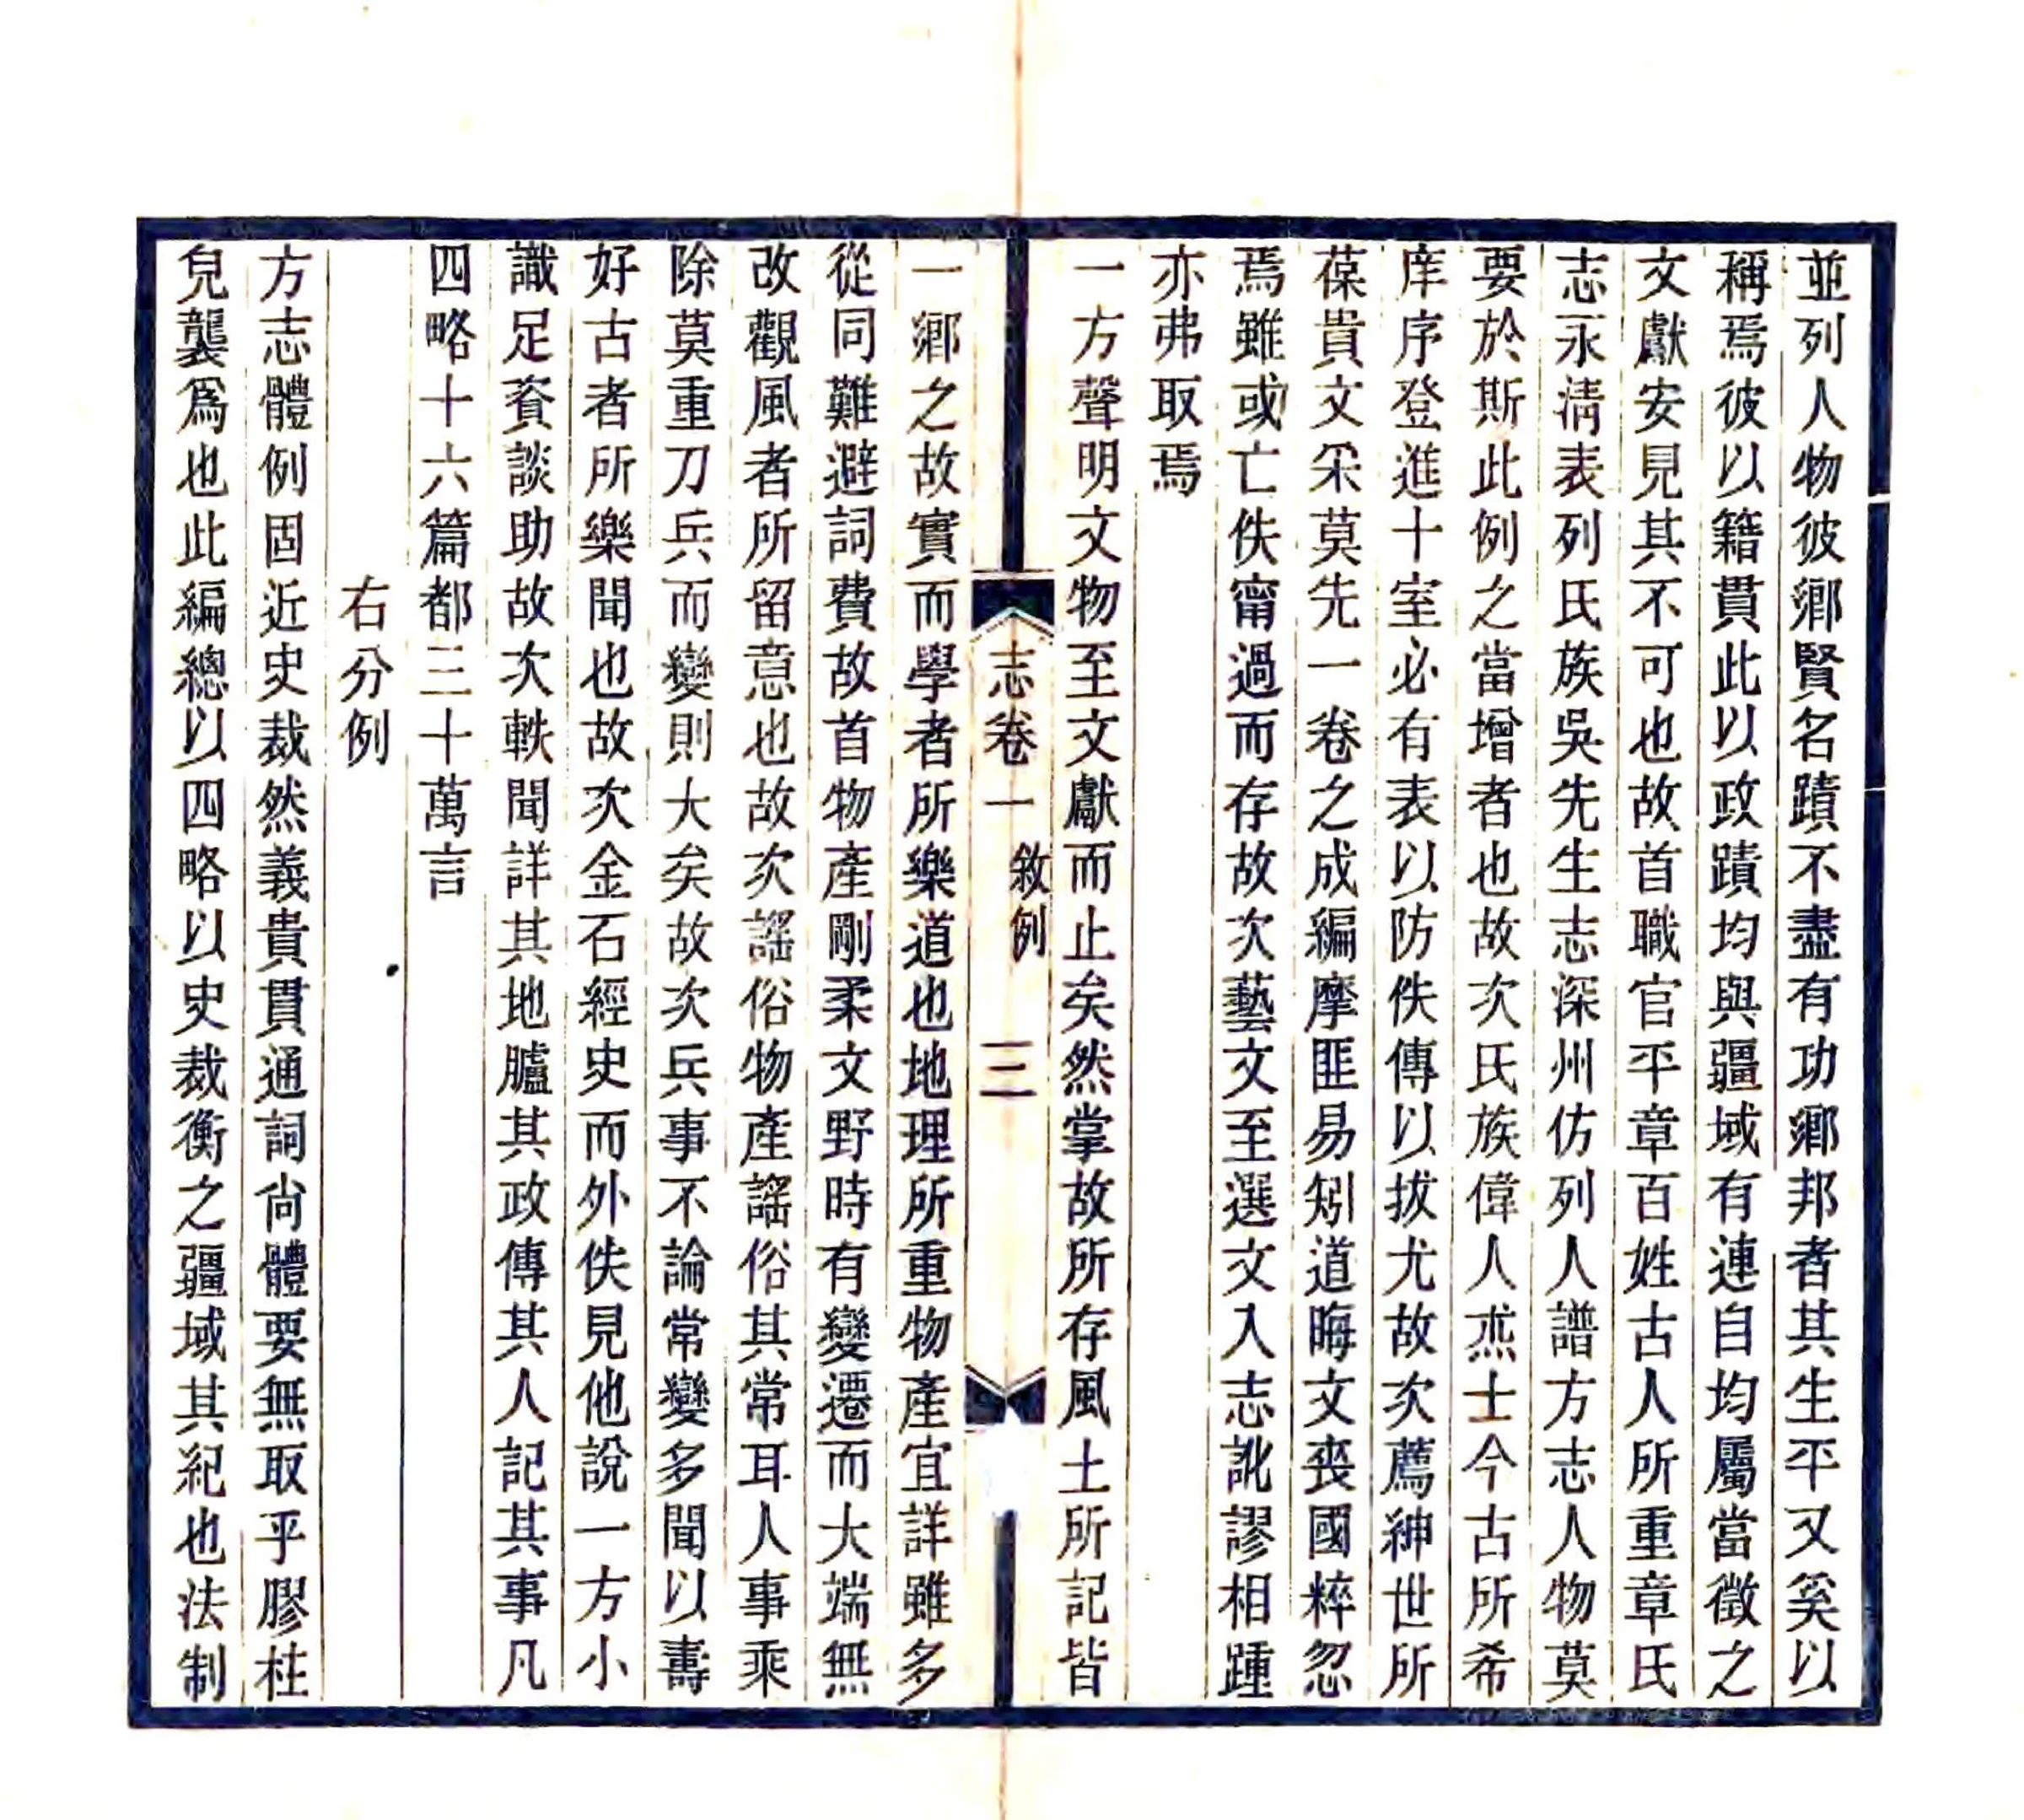 並列人物彼鄉賢名蹟不盡有功鄉邦者其生平又奚以
稱焉彼以籍貫此以政蹟均與疆域有連自均屬當徵之
文獻安見其不可也故首職官平章百姓古人所重章氏
志永淸表列氏族吳先生志深州仿列人譜方志人物莫
要於斯此例之當增者也故次氏族偉人烝士今古所希
庠序登進十室必有表以防佚傳以拔尤故次薦紳世所
葆貴文釆莫先一卷之成編摩匪易矧道晦文喪國粹忽
焉雖或亡佚甯過而存故次藝文至選文入志訛謬相踵
亦弗取焉
一方聲明文物至文獻而止矣然掌故所存風土所記皆
志卷一 敘例 三
一鄉之故實而學者所樂道也地理所重物產宜詳雖多
從同難避詞費故首物產剛柔文野時有變遷而大端無
改觀風者所留意也故次謠俗物產謠俗其常耳人事乘
除莫重刀兵而變則大矣故次兵事不論常變多聞以壽
好古者所樂聞也故次金石經史而外佚見他說一方小
識足資談助故次軼聞詳其地臚其政傳其人記其事凡
四略十六篇都三十萬言
右分例
方志體例固近史裁然義貴貫通詞尙體要無取乎膠柱
皃襲爲也此編總以四略以史裁衡之疆域其紀也法制